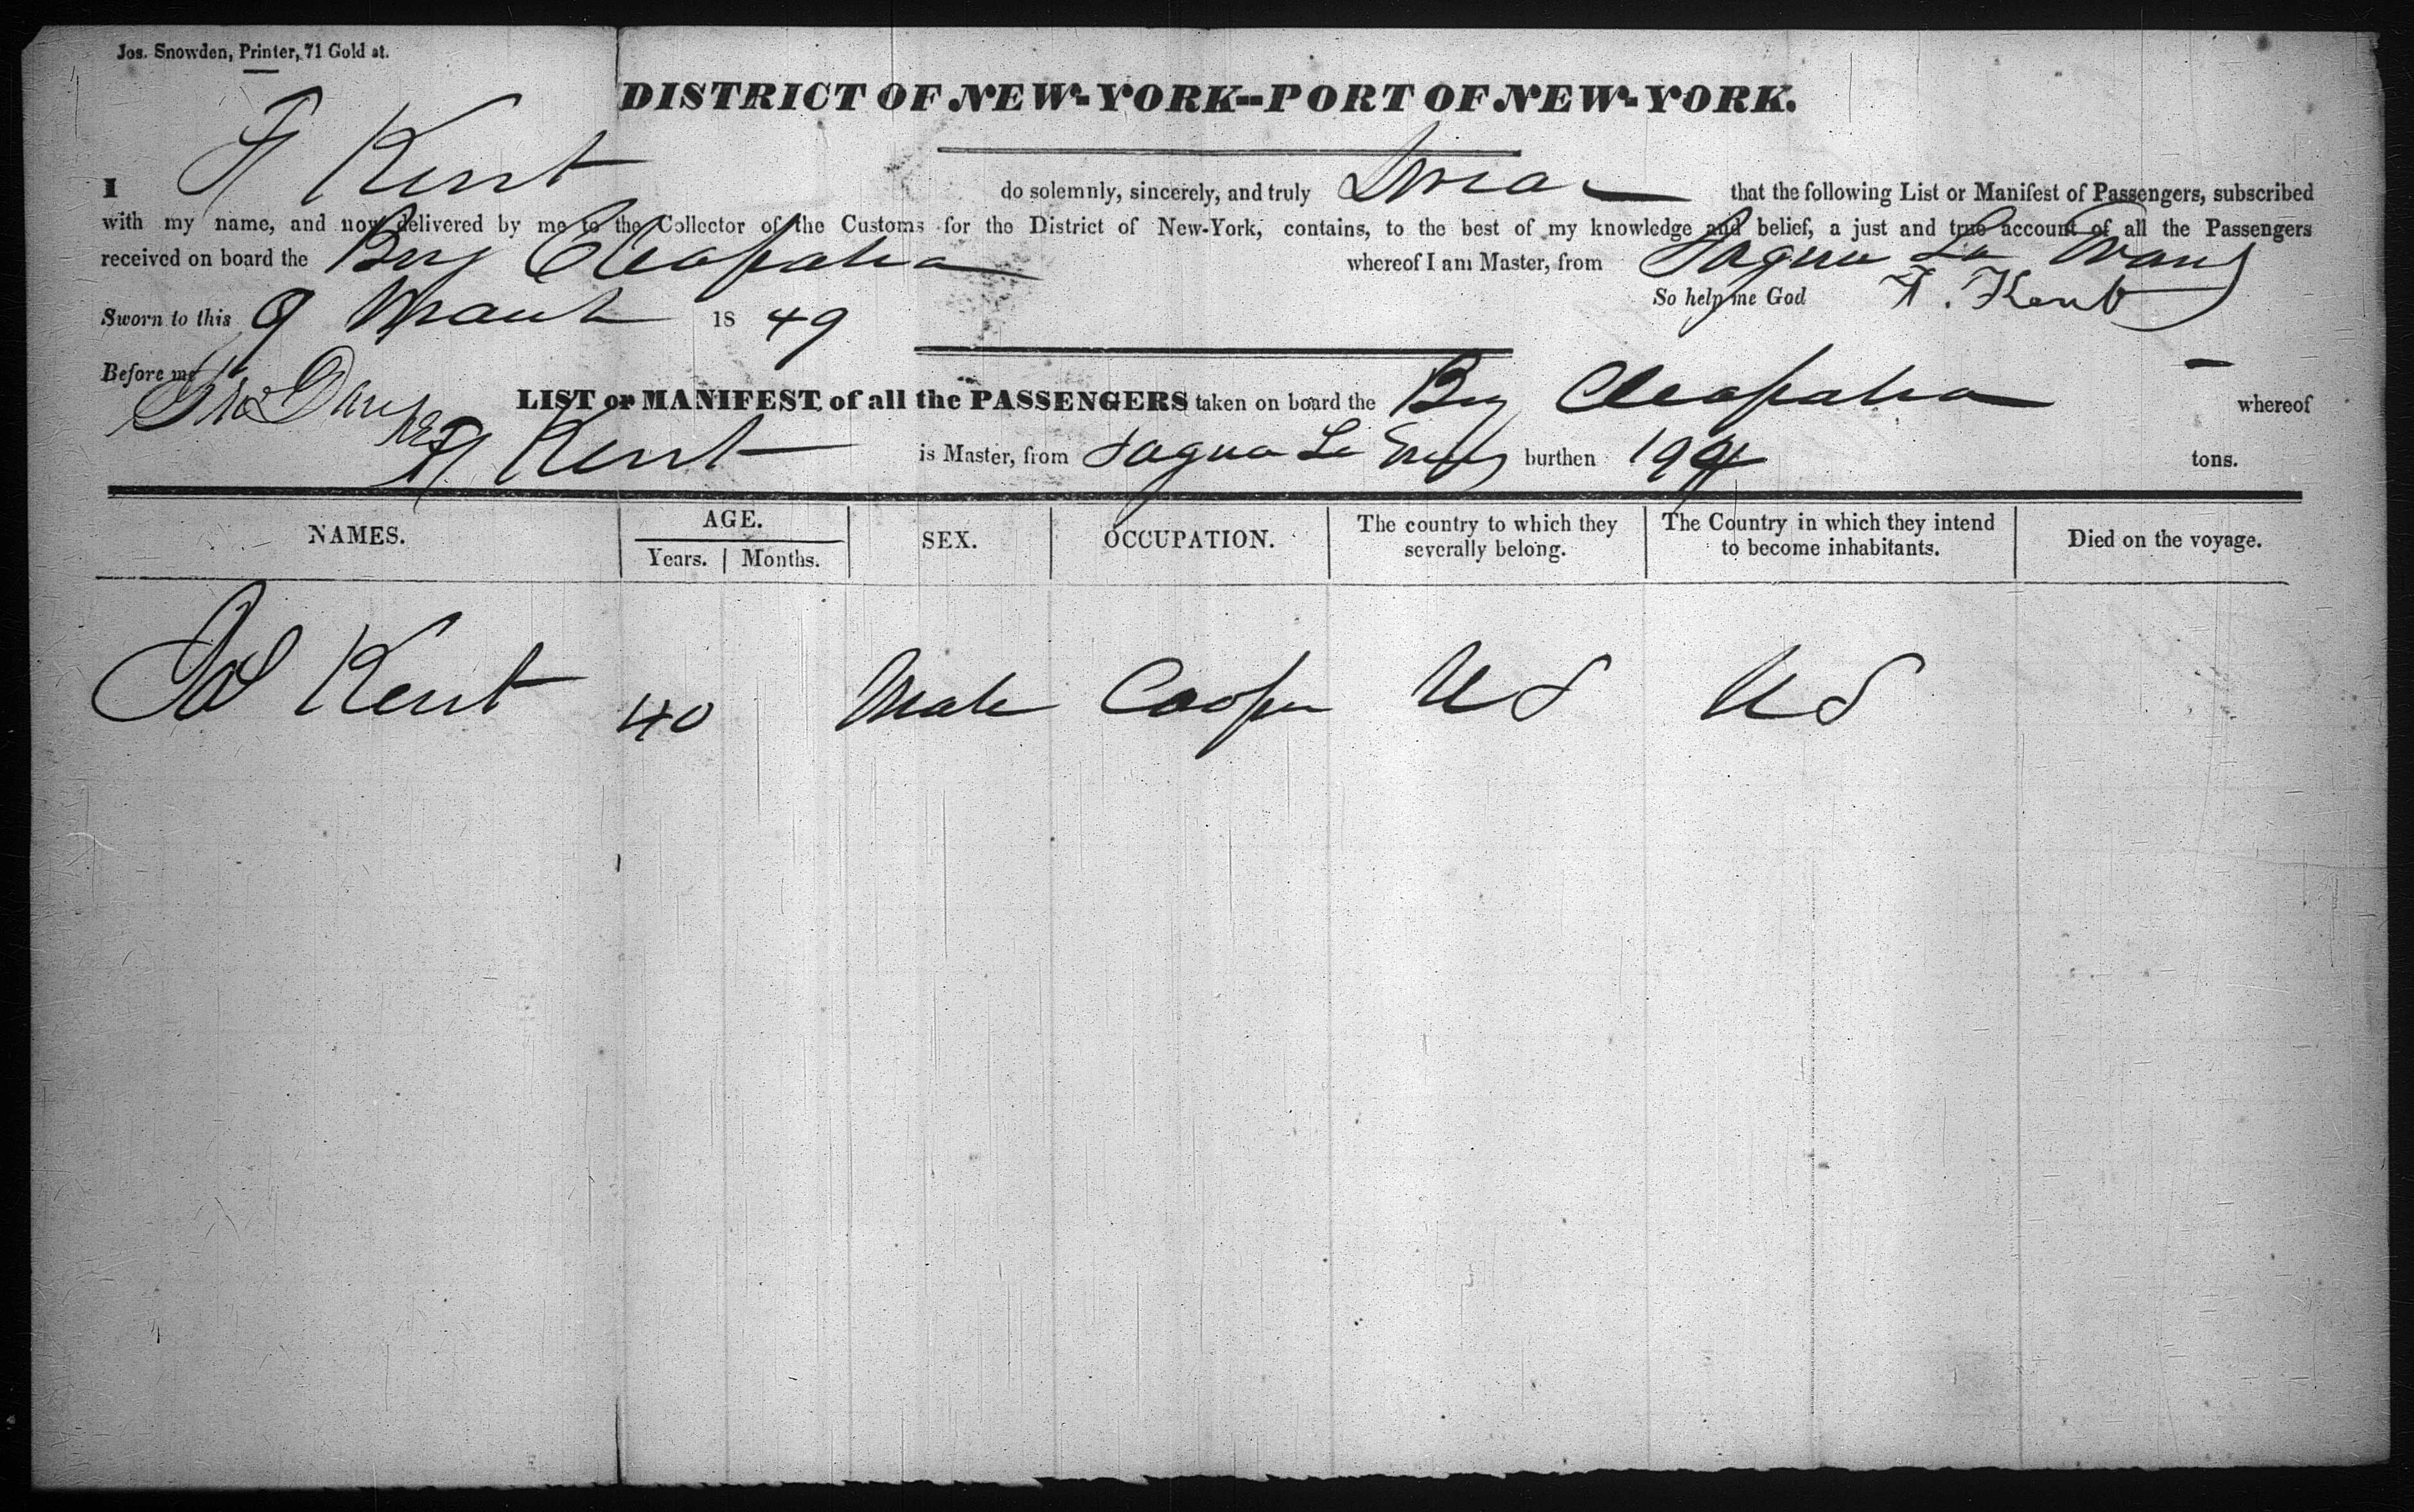 Jos. Snowden, Printer, 71 Gold st.
DISTRICT OF NEW-YORK--PORT OF NEW-YORK.
I F Kent do solemnly, sincerely, and truly Swear that the following List or Manifest of Passengers, subscribed
with my name, and now delivered by me to the Collector of the Customs for the District of New-York, contains, to the best of my knowledge and belief, a just and true account of all the Passengers
received on board the Brig Cleopatra whereof I am Master, from Sagua La
So help me God F. Kent
Sworn to this 9 March 1849
Before me
LIST or MANIFEST of all the PASSENGERS taken on board the Brig Cleopatra whereof
F Kent is Master, from Sagua La burthen 194 tons.
NAMES. AGE. SEX. OCCUPATION. The country to which they severally belong. The Country in which they intend to become inhabitants. Died on the voyage.
Years. Months.
Kent 40 Male Cooper US US